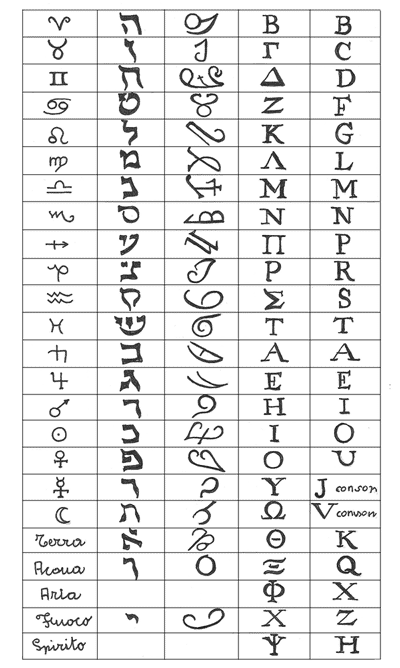 ♈ ה Β B
♉ ו Γ C
♊ ח Δ D
♋ ט Ζ F
♌ ל Κ G
♍ מ Λ L
♎ נ Μ M
♏ ס Ν N
♐ ע Π P
♑ צ Ρ R
♒ ק Σ S
♓ ש Τ T
♄ ב Α A
♃ ג Ε E
♂ ד Η I
☉ כ Ι O
♀ פ Ο U
☿ ר Υ J conson
☾ ת Ω V conson
Terra א Θ K
Acqua Ξ Q
Aria Φ X
Fuoco י Χ Z
Spirito Ψ H